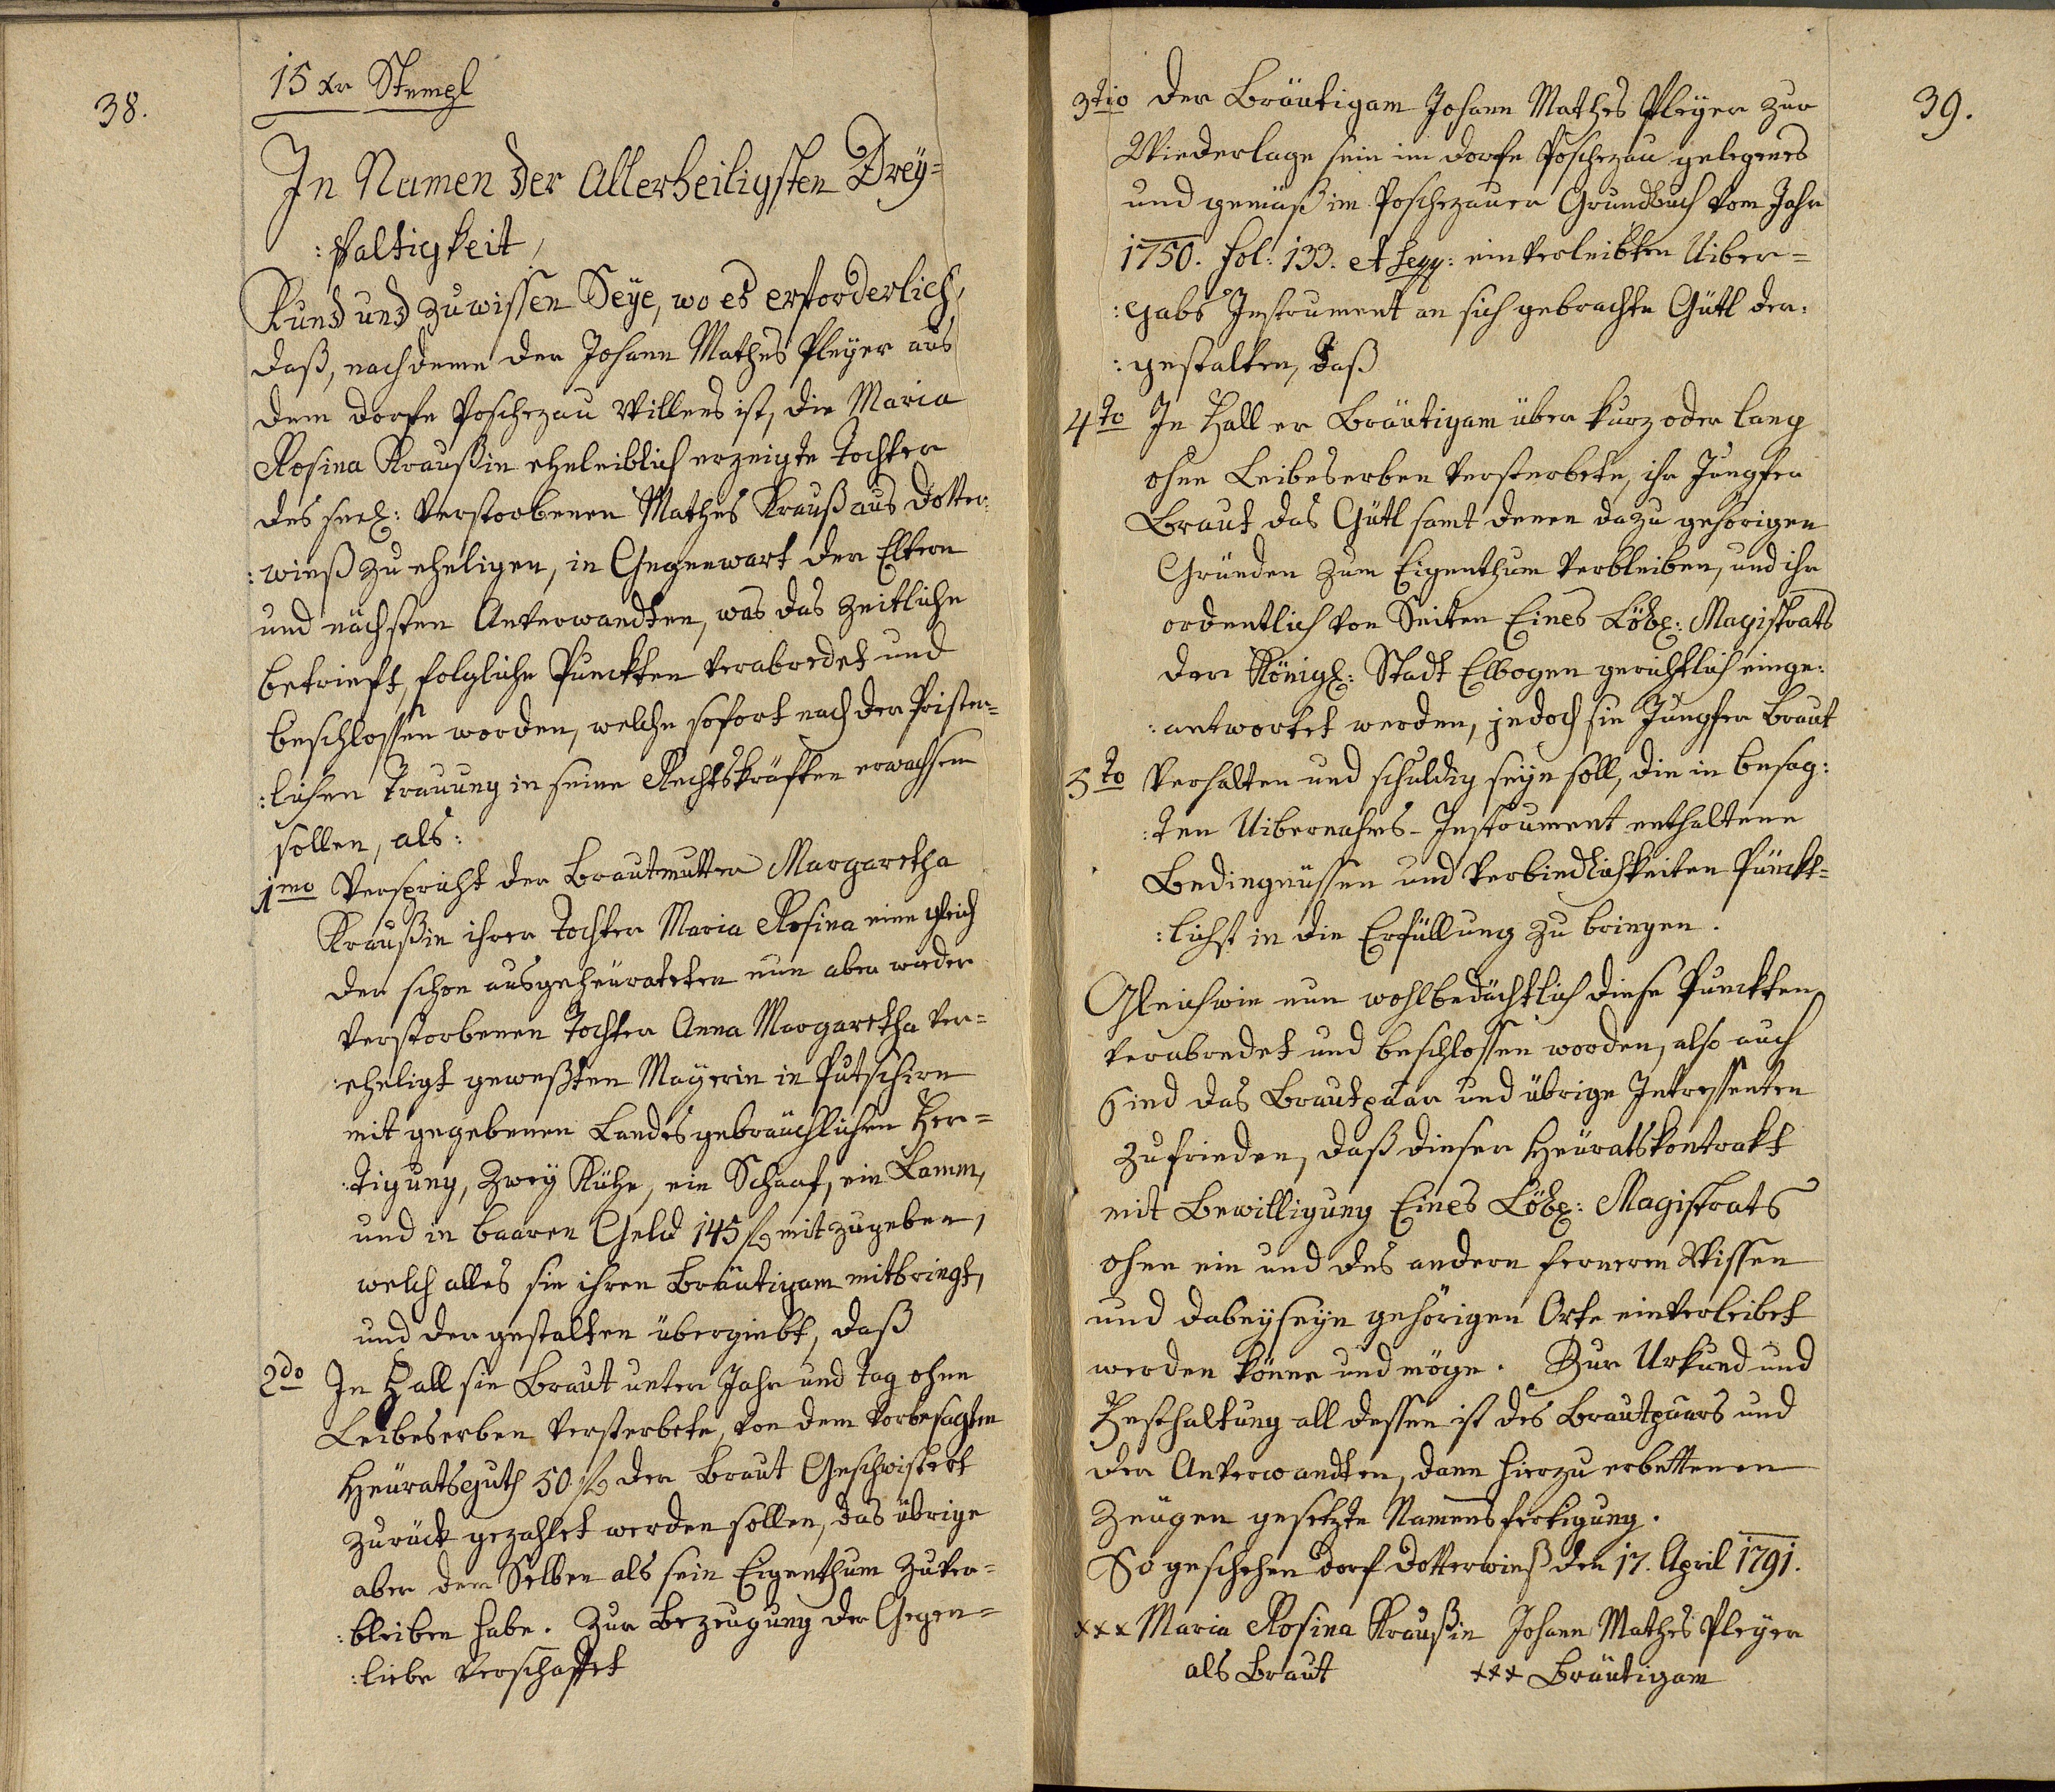 38.
15 xr Stempl
In Namen der Allerheiligsten Drey=
:faltigkeit,
Kund und zuwissen Seye, wo es erforderlich,
daß, nachdeme der Johann Mathes Pleyer aus
dem Dorfe Poschezau Willens ist, die Maria
Rosina Kraußin eheleiblich erzeigte Tochter
des seel: verstorbenen Mathes Krauß aus Dotter=
:wieß zu eheligen, in Gegenwart der Eltern
und nächsten Anverwandten, was das Zeitliche
betrieft, folgliche Punckten verabredet und
beschlossen worden, welche sofort nach der Prister=
:lichen Trauung in seine Rechtskräften erwachsen
sollen, als:
1mo Verspricht der Brautmutter Margaretha
Kraußin ihrer Tochter Maria Rosina eine gleich
der schon ausgeheürateten nun aber wieder
verstorbenen Tochter Anna Margaretha ver=
:eheligt geweßten Mayerin in Putschirn
mit gegebenen Landesgebräuchlichen Fer=
:tigung, Zwey Kühe, ein Schaaf, ein Lamm,
und in baaren Geld 145 fl mit zugeben,
welch alles sie ihren Bräutigam mitbringt,
und der gestalten übergiebt, daß
2do In Fall sie Braut unter Jahr und Tag ohne
Leibeserben versterbete, von dem vorbesagten
Heüratsguth 50 fl der Braut Geschwistert
zurück gezahlet werden sollen, das übrige
aber dem Selben als sein Eigenthum zu ver=
:bleiben habe. Zur Bezeugung der Gegen=
:liebe verschaffet
39.
3tio Der Bräutigam Johann Mathes Pleyer zur
Wiederlage sein im Dorfe Poschezau gelegenes
und gemäß im Poschezauer Grundbuch vom Jahr
1750. fol: 133. et seqq: einverleibten Uiber=
:gabs Instrument an sich gebrachte Gütl der=
:gestalten, daß
4to In Fall er Bräutigam über kurz oder lang
ohne Leibeserben versterbete, ihr Jungfer
Braut das Gütl samt denen dazu gehörigen
Gründen zum Eigenthum verbleiben, und ihr
ordentlich von Seiten Eines Löbl: Magistrats
der Königl: Stadt Elbogen gerichtlich einge=
:antwortet werden, jedoch sie Jungfer Braut
5to Verhalten und schuldig seyn soll, die in besag=
:ten Uibernahms-Instrument enthaltene
Bedingnüssen und Verbindlichkeiten Pünckt=
:lichst in die Erfüllung zu bringen.
Gleichwie nun wohlbedächtlich diese Punckten
verabredet und beschlossen worden, also auch
Sind das Brautpaar und übrige Intressenten
zufrieden, daß dieser Heüratskontrakt
mit Bewilligung Eines Löbl: Magistrats
ohne ein und des andern ferneren Wissen
und dabeyseyn gehörigen Orte einverleibet
werden könne und möge. Zur Urkund und
Festhaltung all dessen ist des Brautpaars und
der Anverwandten, dann hierzu erbettenen
Zeugen gesetzte Namensfertigung.
So geschehen Dorf Dotterwieß den 17. April 1791.
xxx Maria Rosina Kraußin Johann Mathes Pleyer
als Braut xxx Bräutigam